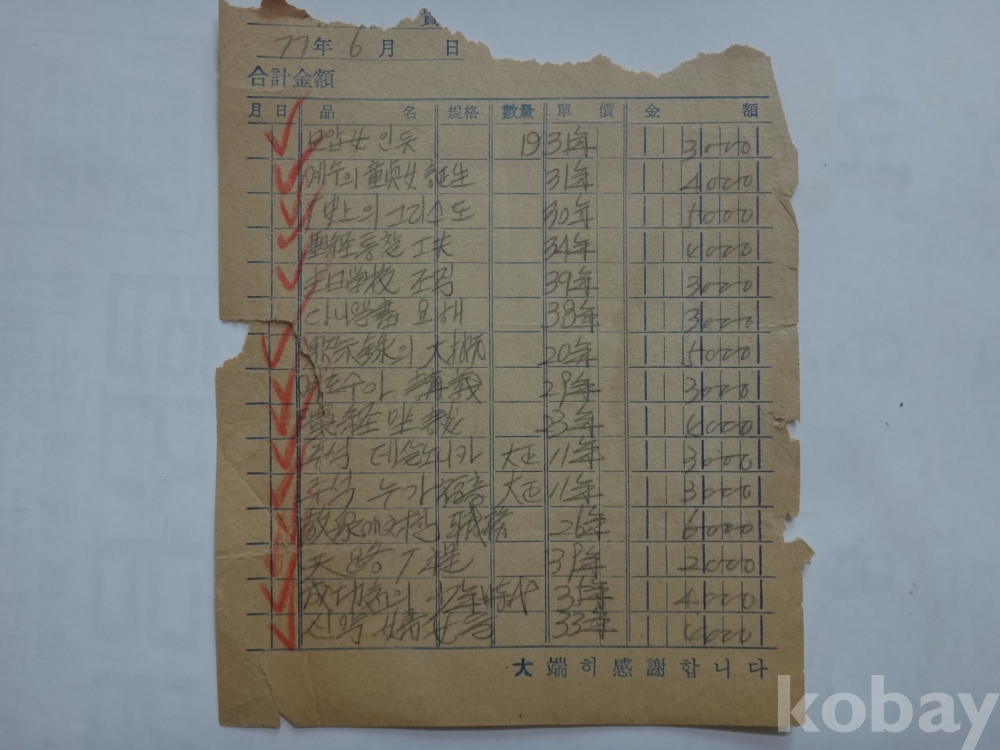 77年 6月 日
合計金額
月 日 品 名 規格 數量 單 價 金 額
모압女 인듯 1931年 3000
예수의 童貞女 誕生 31年 4000
史上의 그리스도 30年 5000
聖経통신 工夫 34年 4000
主日学校 조직 39年 3000
다니엘書 요해 38年 3000
黙示録의 大槪 20年 5000
여호수아 講義 29年 3000
33年 4000
주석 데살로니가 大正 11年 3000
주석 누가福音 大正 11年 3000
26年 6000
天路 39年 2000
成功者의 少年時代 35年 4000
신약 33年 4000
大端히 感謝합니다
kobay